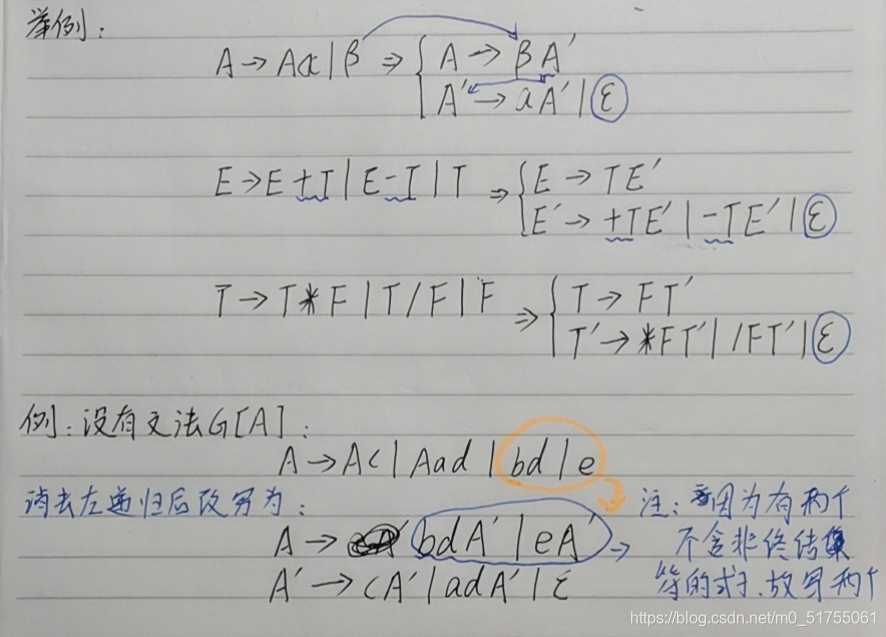 举例：
A → Aα | β ⇒ { A → βA'
A' → aA' | ε
E → E+T | E-T | T ⇒ { E → TE'
E' → +TE' | -TE' | ε
T → T*F | T/F | F ⇒ { T → FT'
T' → *FT' | /FT' | ε
例：设有文法G[A]：
A → Ac | Aad | bd | e
消去左递归后改写为：
注：因为有两个
A → bdA' | eA' →
不含非终结
A' → cA' | adA' | ε
符的式子，故写两个
https://blog.csdn.net/m0_51755061